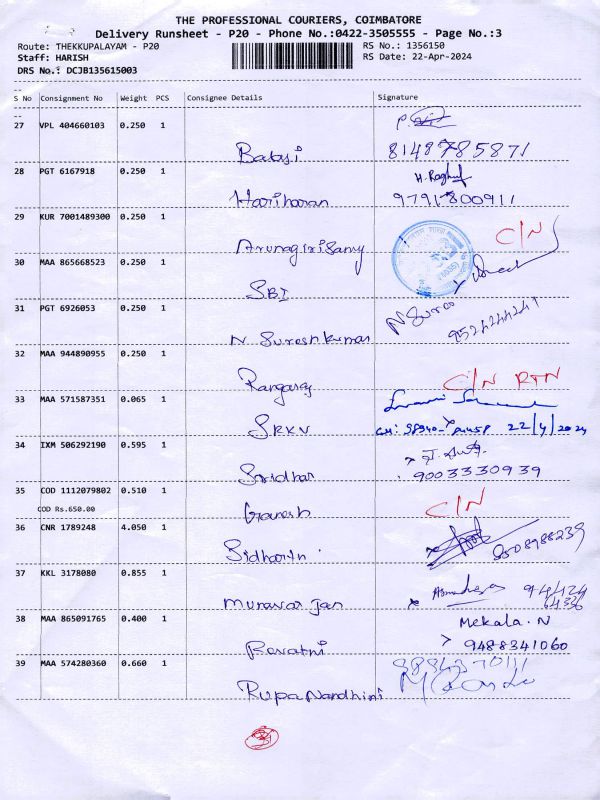 THE PROFESSIONAL COURIERS, COIMBATORE
Delivery Runsheet - P20 - Phone No.:0422-3505555 - Page No.:3
Route: THEKKUPALAYAM - P20
RS No.: 1356150
Staff: HARISH
RS Date: 22-Apr-2024
DRS No.: DCJB135615003
S No Consignment No Weight PCS Consignee Details Signature
27 VPL 404660103 0.250 1
Balaji 8148785871
28 PGT 6167918 0.250 1 H. Raghu
Hariharan 9791800911
29 KUR 7001489300 0.250 1 C/N
Arunagirisamy
30 MAA 865668523 0.250 1
SBI
31 PGT 6926053 0.250 1 N Suree
N. Sureshkumar 9524244241
32 MAA 944890955 0.250 1
Rangaraj C/N RTN
33 MAA 571587351 0.065 1
SRKV 22/4/2024
34 IXM 506292190 0.595 1
Sridhar 9003330939
35 COD 1112079802 0.510 1 C/N
COD Rs.650.00
Ganesh
36 CNR 1789248 4.050 1
Sidharth 9508988239
37 KKL 3178080 0.855 1
38 MAA 865091765 0.400 1 Mekala. N
Revathi 9488341060
39 MAA 574280360 0.660 1
Rupa Nandhini